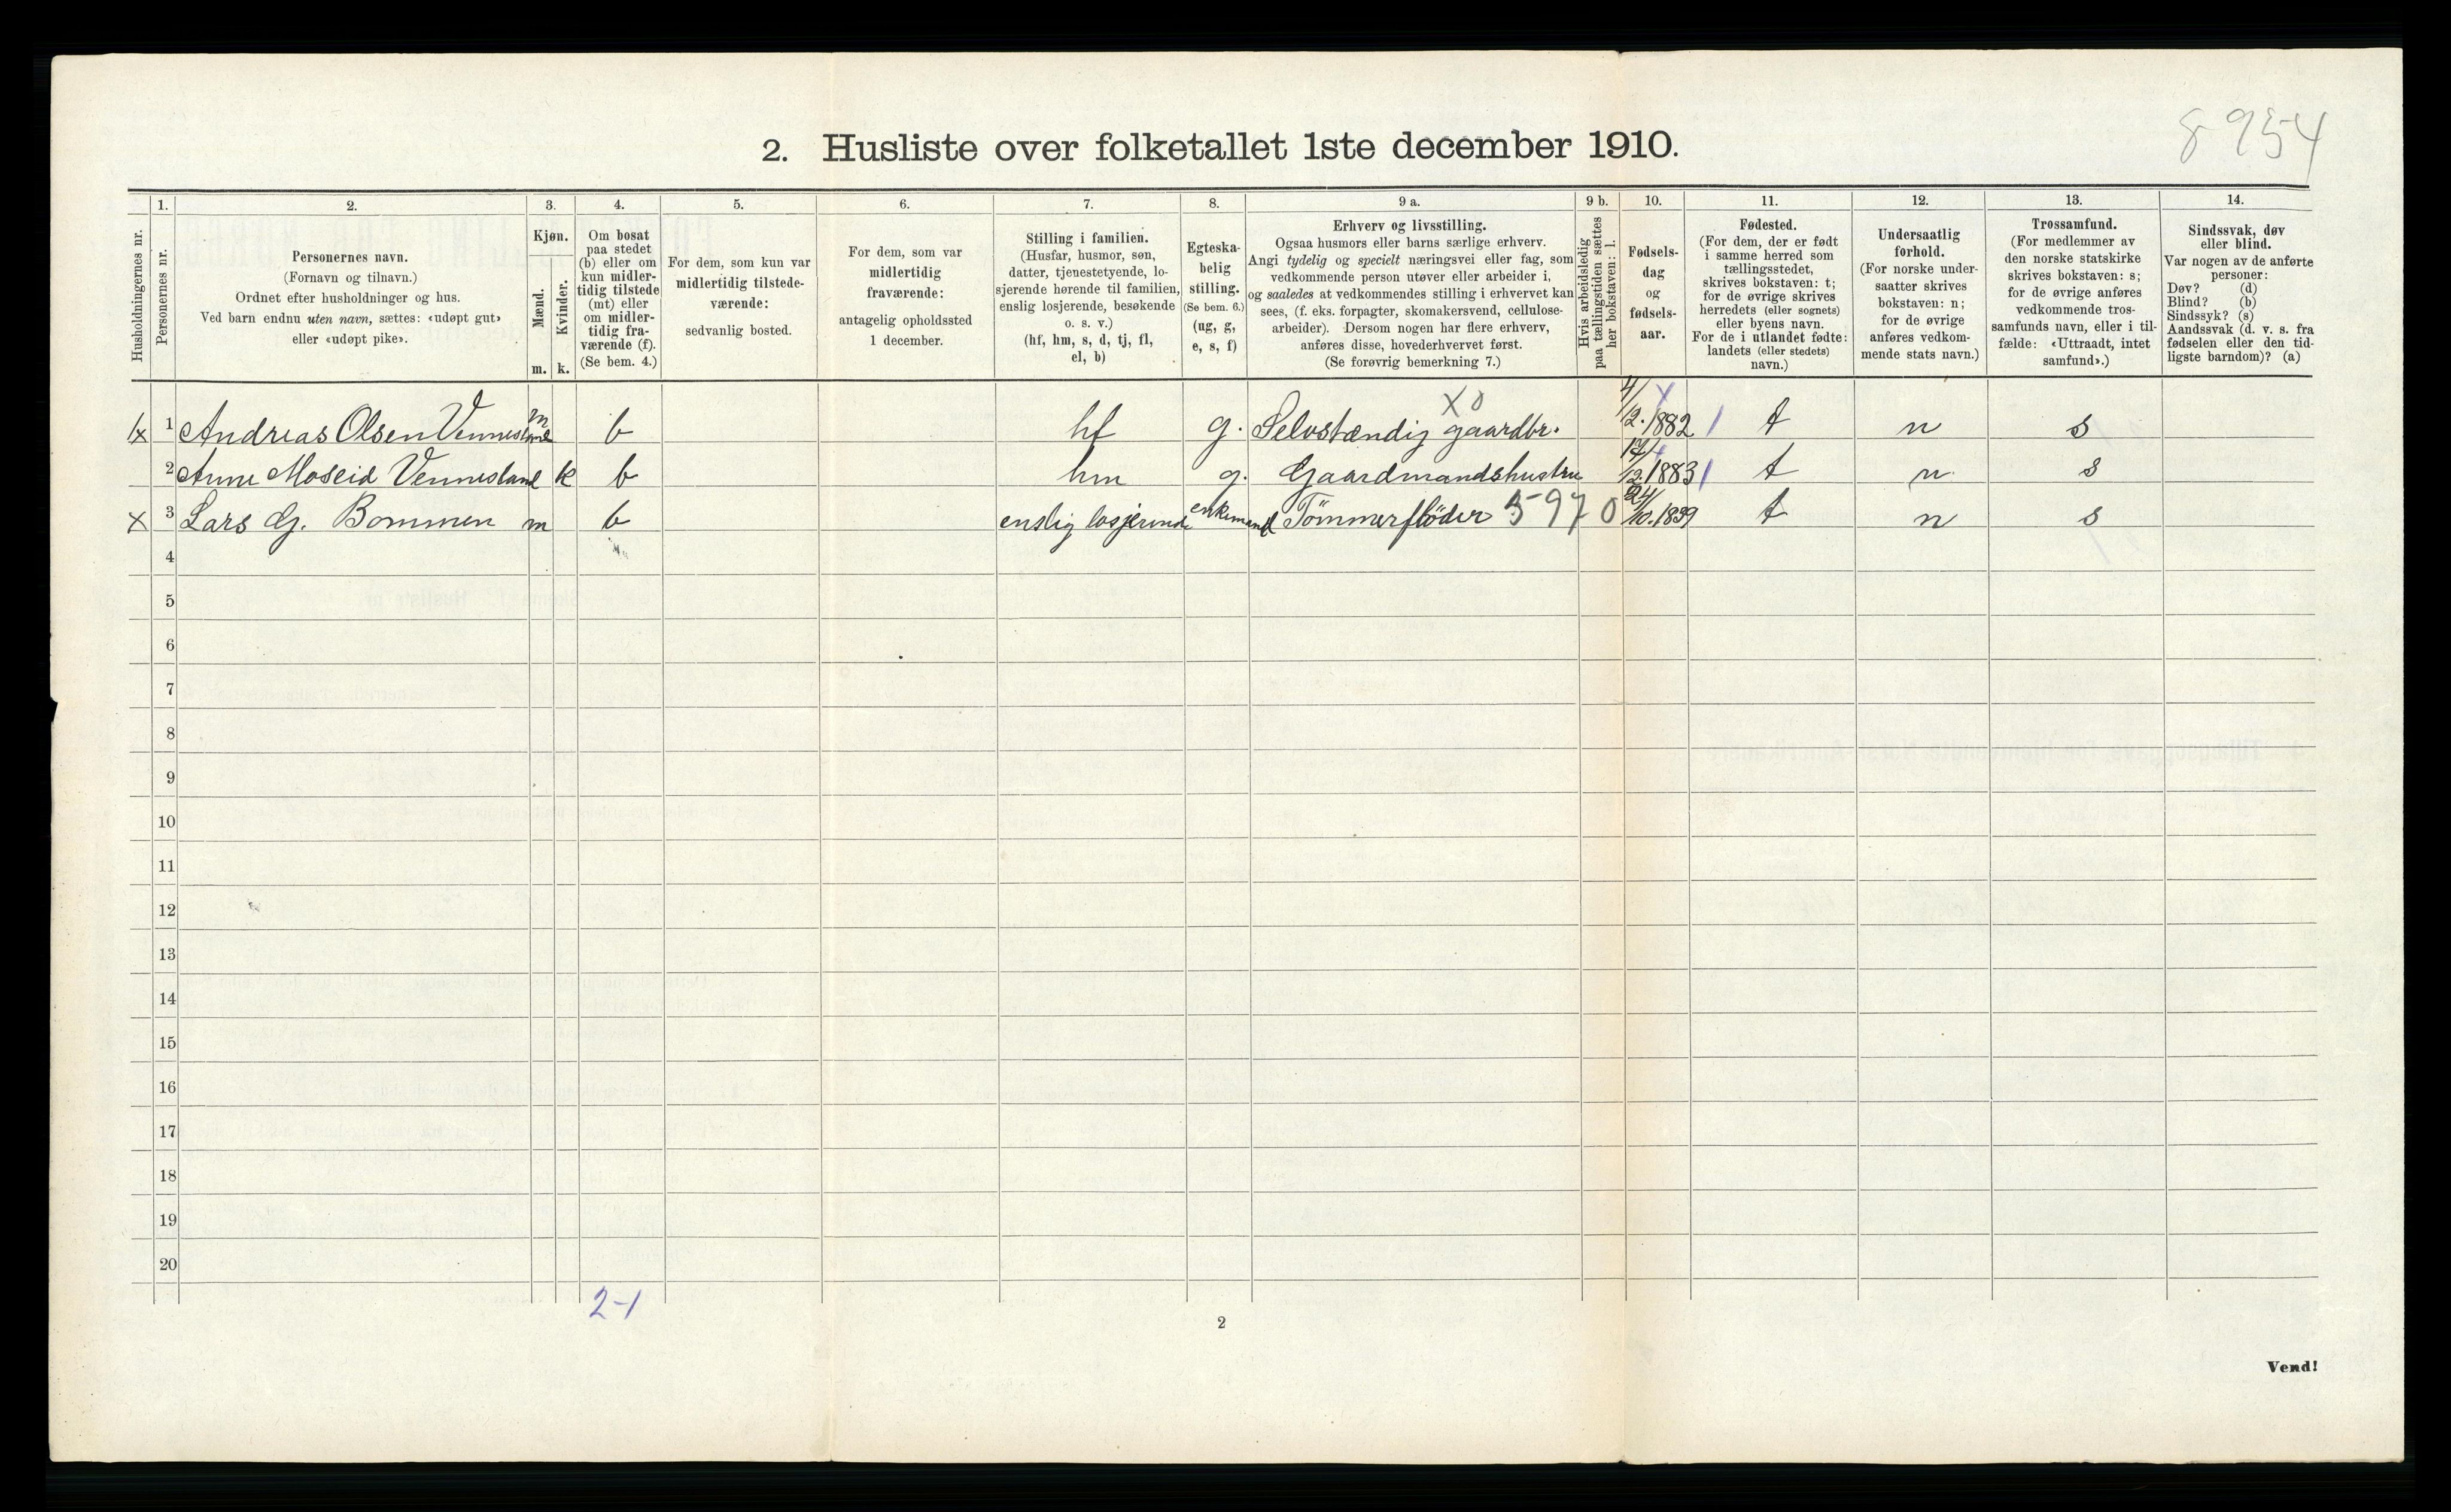 8954
2. Husliste over folketallet 1ste december 1910.
Husholdningernes nr.
1.
Personernes nr.
2.
Personernes navn.
(Fornavn og tilnavn.)
Ordnet efter husholdninger og hus.
Ved barn endnu uten navn, sættes: «udøpt gut»
eller «udøpt pike».
3.
Kjøn.
Mænd.
Kvinder.
m. k.
4.
Om bosat
paa stedet
(b) eller om
kun midler-
tidig tilstede
(mt) eller
om midler-
tidig fra-
værende (f).
(Se bem. 4.)
5.
For dem, som kun var
midlertidig tilstede-
værende:
sedvanlig bosted.
6.
For dem, som var
midlertidig
fraværende:
antagelig opholdssted
1 december.
7.
Stilling i familien.
(Husfar, husmor, søn,
datter, tjenestetyende, lo-
sjerende hørende til familien,
enslig losjerende, besøkende
o. s. v.)
(hf, hm, s, d, tj, fl,
el, b)
8.
Egteska-
belig
stilling.
(Se bem. 6.)
(ug, g,
e, s, f)
9 a.
Erhverv og livsstilling.
Ogsaa husmors eller barns særlige erhverv.
Angi tydelig og specielt næringsvei eller fag, som
vedkommende person utøver eller arbeider i,
og saaledes at vedkommendes stilling i erhvervet kan
sees, (f. eks. forpagter, skomakersvend, cellulose-
arbeider). Dersom nogen har flere erhverv,
anføres disse, hovederhvervet først.
(Se forøvrig bemerkning 7.)
9 b.
Hvis arbeidsledig
paa tællingstiden sættes
her bokstaven: l.
10.
Fødsels-
dag
og
fødsels-
aar.
11.
Fødested.
(For dem, der er født
i samme herred som
tællingsstedet,
skrives bokstaven: t;
for de øvrige skrives
herredets (eller sognets)
eller byens navn.
For de i utlandet fødte:
landets (eller stedets)
navn.)
12.
Undersaatlig
forhold.
(For norske under-
saatter skrives
bokstaven: n;
for de øvrige
anføres vedkom-
mende stats navn.)
13.
Trossamfund.
(For medlemmer av
den norske statskirke
skrives bokstaven: s;
for de øvrige anføres
vedkommende tros-
samfunds navn, eller i til-
fælde: «Uttraadt, intet
samfund».)
14.
Sindssvak, døv
eller blind.
Var nogen av de anførte
personer:
Døv? (d)
Blind? (b)
Sindssyk? (s)
Aandssvak (d. v. s. fra
fødselen eller den tid-
ligste barndom)? (a)
x 1 Andreas Olsen Vennesland m b hf g. Selvstændig gaardbr. X0 4/12.1882 t n s
2 Anne Moseid Vennesland k b hm g. Gaardmandshustru 17/12.1883 t n s
x 3 Lars G. Bommen m b enslig losjerende enkemand Tömmerflöder 5970 24/10.1839 t n s
4
5
6
7
8
9
10
11
12
13
14
15
16
17
18
19
20
2-1
2
Vend!